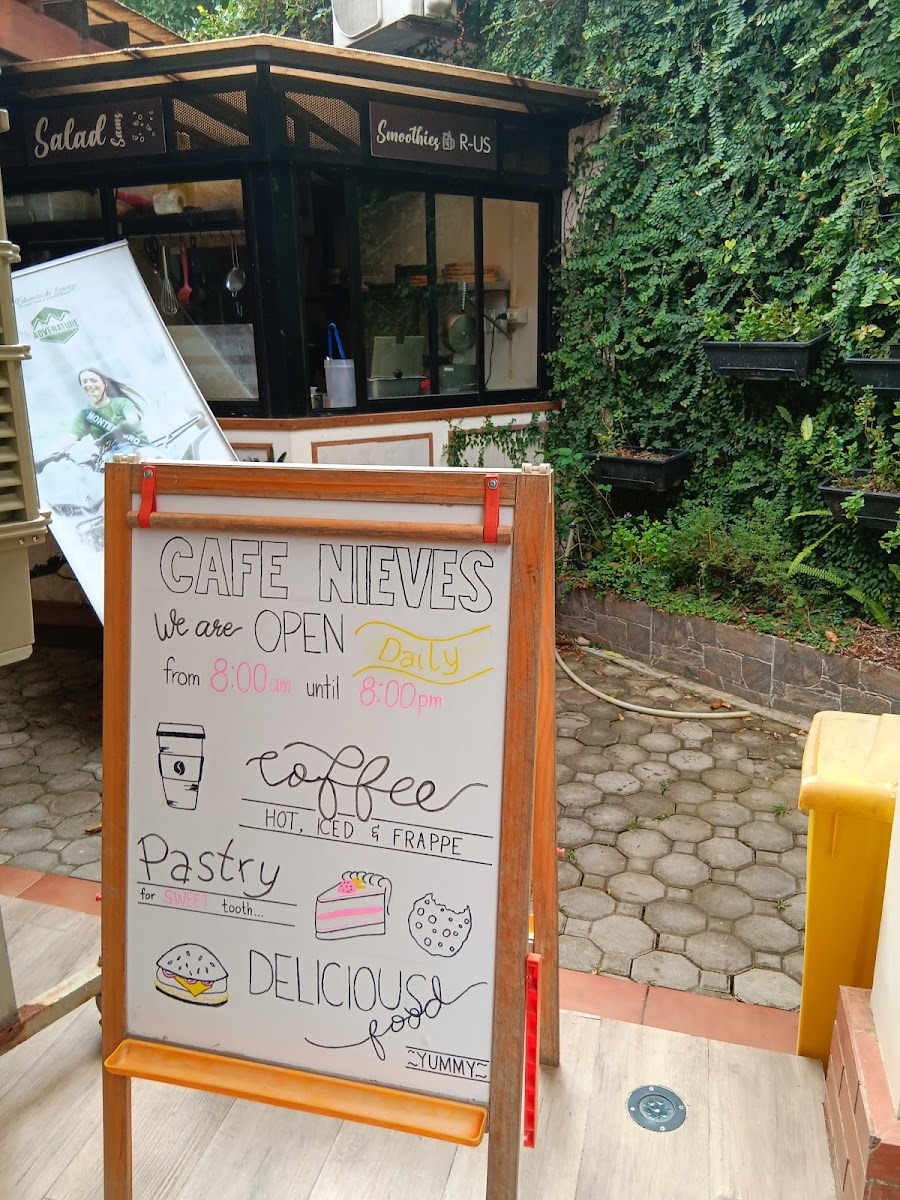 Salad
Smoothies R-US
Estancia de Lorenzo
ADVENATURE
CAFE NIEVES
We are OPEN Daily
from 8:00am until 8:00pm
coffee
HOT, ICED & FRAPPE
Pastry
for SWEET tooth...
DELICIOUS
food
~YUMMY~